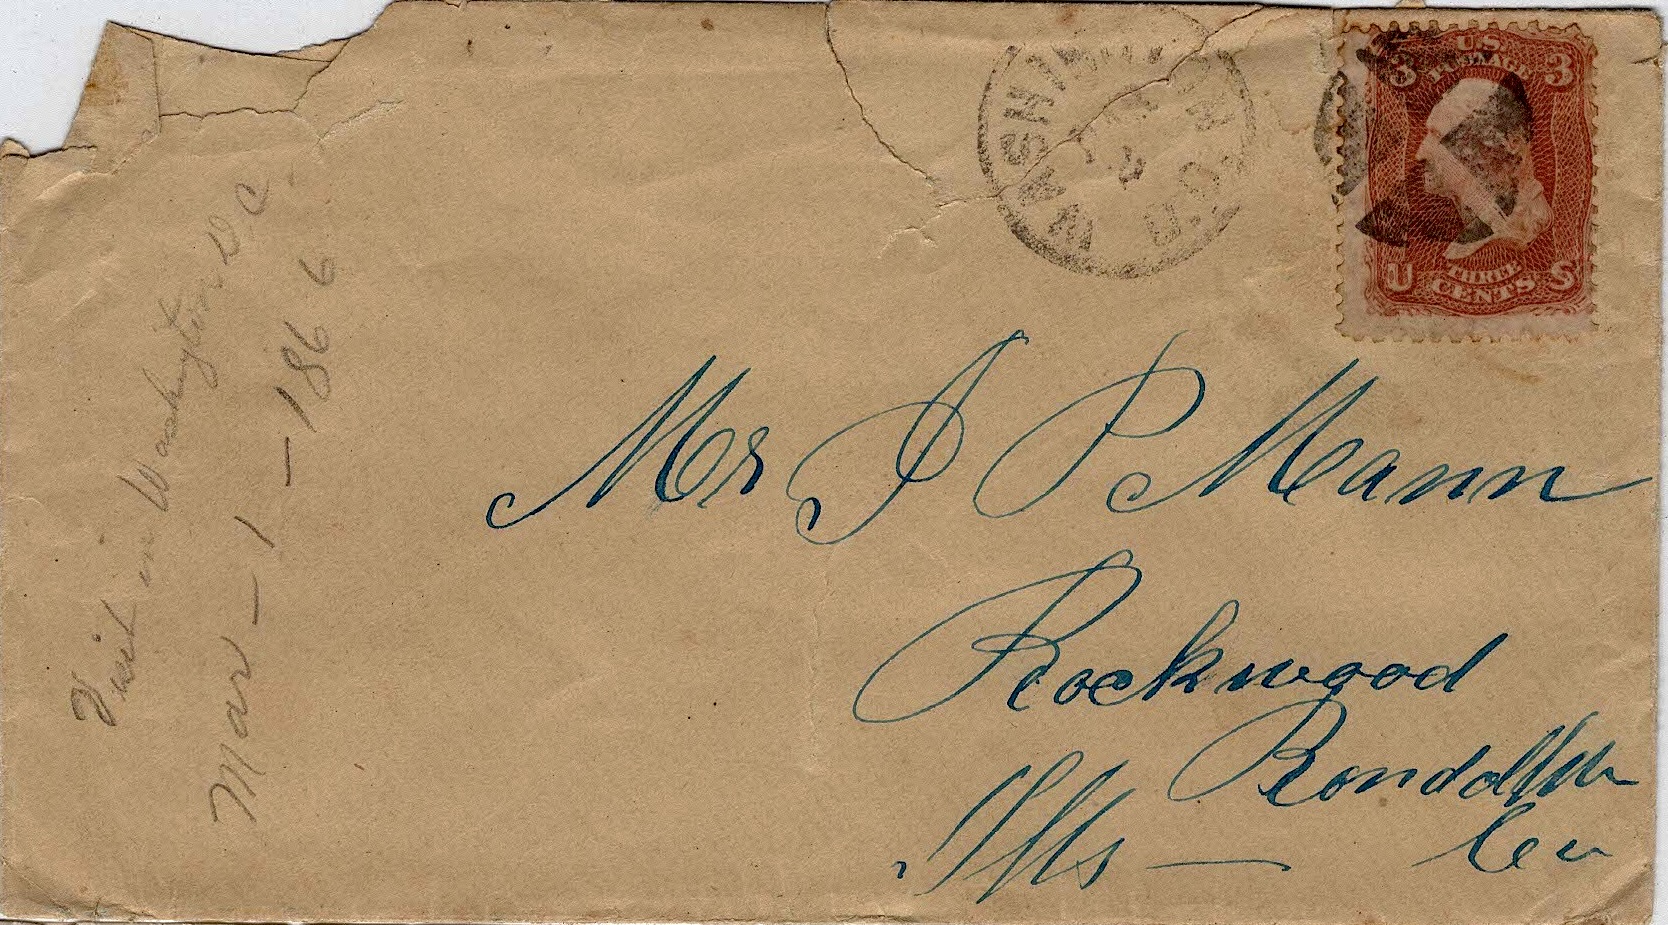 Visit in Washington D C
Mar - 1 - 1866
WASHINGTON
D.C.
3 U.S. 3
POSTAGE
U THREE S
CENTS
Mr J P Mann
Rockwood
Randolph
Ills — Co